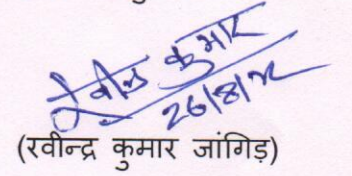 रवीन्द्र कुमार
26/8/22
(रवीन्द्र कुमार जांगिड़)